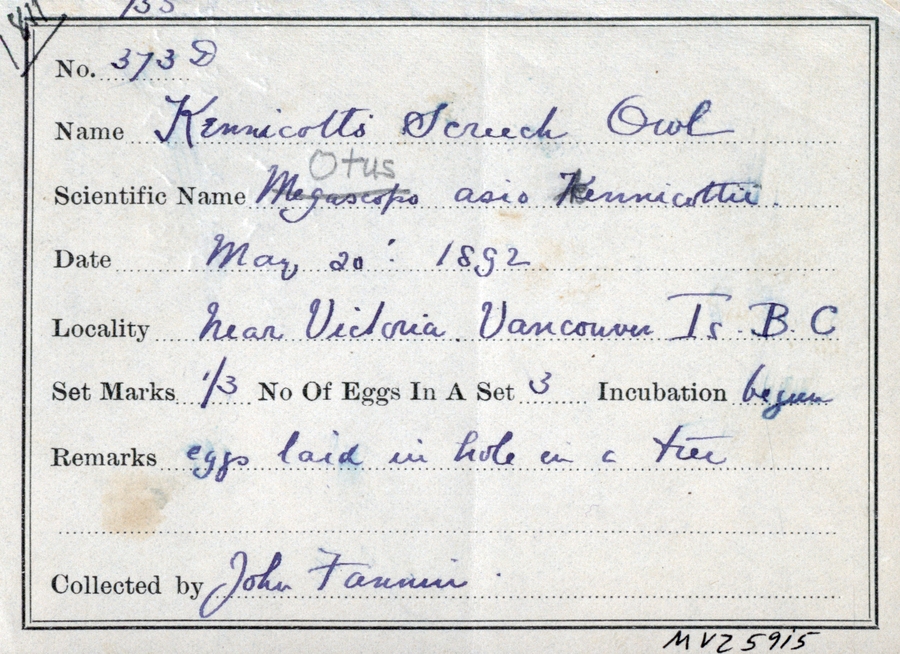 1811
No. 373 D
Name Kennicotts Screech Owl
Otus
Scientific Name Megascops asio Kennicottii.
Date May 20' : 1892
Locality near Victoria. Vancouver Is. B. C
Set Marks 1/3 No Of Eggs In A Set 3 Incubation begun
Remarks eggs laid in hole in a tree
Collected by John Fannin.
MVZ 5915